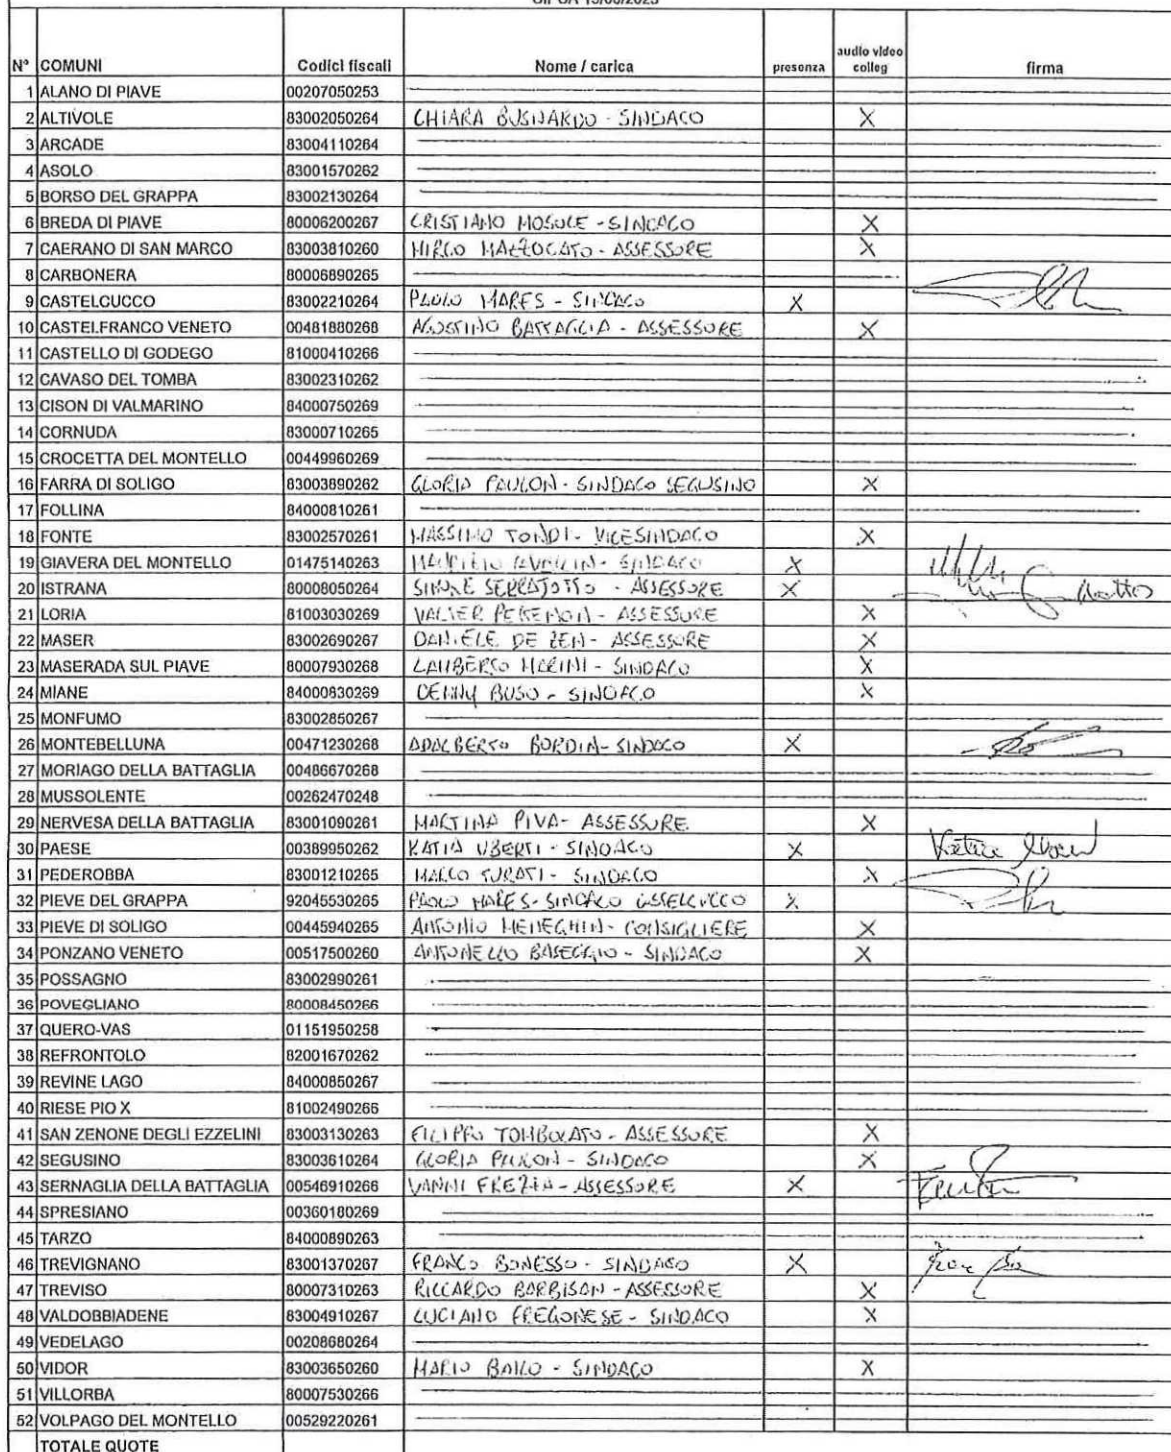 N° COMUNI Codici fiscali Nome / carica presenza audio video colleg firma
1 ALANO DI PIAVE 00207050253
2 ALTIVOLE 83002050264 CHIARA BUSNARDO - SINDACO X
3 ARCADE 83004110264
4 ASOLO 83001570262
5 BORSO DEL GRAPPA 83002130264
6 BREDA DI PIAVE 80006200267 CRISTIANO MOSOLE - SINDACO X
7 CAERANO DI SAN MARCO 83003810260 MIRCO MAZZOCATO - ASSESSORE X
8 CARBONERA 80006890265
9 CASTELCUCCO 83002210264 PAOLO MARES - SINDACO X
10 CASTELFRANCO VENETO 00481880268 AGOSTINO BATTAGLIA - ASSESSORE X
11 CASTELLO DI GODEGO 81000410266
12 CAVASO DEL TOMBA 83002310262
13 CISON DI VALMARINO 84000750269
14 CORNUDA 83000710265
15 CROCETTA DEL MONTELLO 00449960269
16 FARRA DI SOLIGO 83003890262 GLORIA PAULON - SINDACO SEGUSINO X
17 FOLLINA 84000810261
18 FONTE 83002570261 MASSIMO TONDI - VICESINDACO X
19 GIAVERA DEL MONTELLO 01475140263 MAURIZIO CAVALLIN - SINDACO X
20 ISTRANA 80008050264 SIMONE SERRAJOTTO - ASSESSORE X
21 LORIA 81003030269 VALTER PEREMON - ASSESSORE X
22 MASER 83002690267 DANIELE DE ZEN - ASSESSORE X
23 MASERADA SUL PIAVE 80007930268 LAMBERTO MARINI - SINDACO X
24 MIANE 84000830269 DENNY BUSO - SINDACO X
25 MONFUMO 83002850267
26 MONTEBELLUNA 00471230268 ADALBERTO BORDIN - SINDACO X
27 MORIAGO DELLA BATTAGLIA 00486670268
28 MUSSOLENTE 00262470248
29 NERVESA DELLA BATTAGLIA 83001090261 MARTINA PIVA - ASSESSORE X
30 PAESE 00389950262 KATIA UBERTI - SINDACO X Katia Uberti
31 PEDEROBBA 83001210265 MARCO TURATI - SINDACO X
32 PIEVE DEL GRAPPA 92045530265 PAOLO MARES - SINDACO CASTELCUCCO X
33 PIEVE DI SOLIGO 00445940265 ANTONIO MENEGHIN - CONSIGLIERE X
34 PONZANO VENETO 00517500260 ANTONELLO BASEGGIO - SINDACO X
35 POSSAGNO 83002990261
36 POVEGLIANO 80008450266
37 QUERO-VAS 01151950258
38 REFRONTOLO 82001670262
39 REVINE LAGO 84000850267
40 RIESE PIO X 81002490266
41 SAN ZENONE DEGLI EZZELINI 83003130263 FILIPPO TOMBOLATO - ASSESSORE X
42 SEGUSINO 83003610264 GLORIA PAULON - SINDACO X
43 SERNAGLIA DELLA BATTAGLIA 00546910266 VANNI FREZZA - ASSESSORE X
44 SPRESIANO 00360180269
45 TARZO 84000890263
46 TREVIGNANO 83001370267 FRANCO BONESSO - SINDACO X
47 TREVISO 80007310263 RICCARDO BARBISAN - ASSESSORE X
48 VALDOBBIADENE 83004910267 LUCIANO FREGONESE - SINDACO X
49 VEDELAGO 00208680264
50 VIDOR 83003650260 MARIO BAILO - SINDACO X
51 VILLORBA 80007530266
52 VOLPAGO DEL MONTELLO 00529220261
TOTALE QUOTE